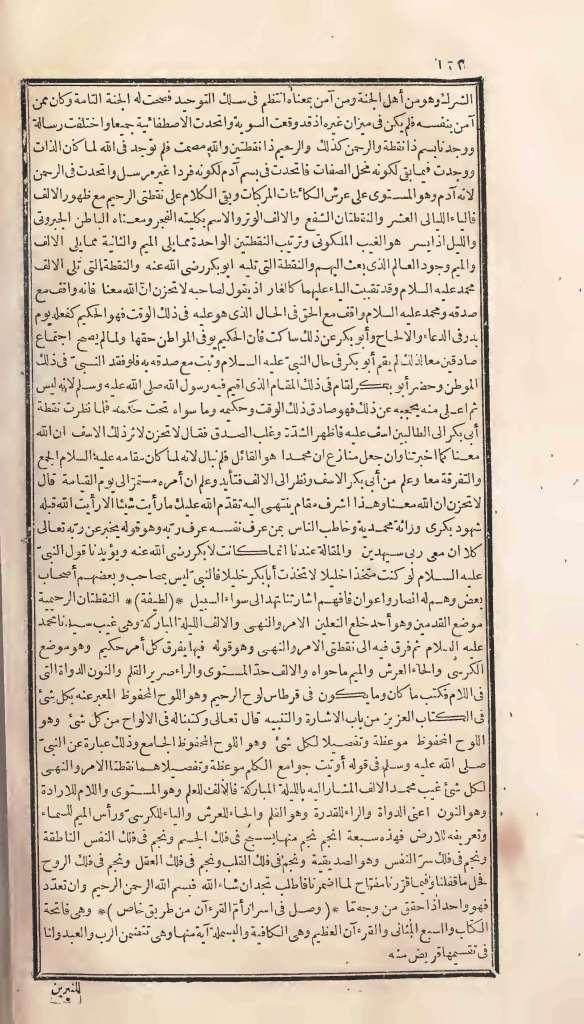 الشرك وهو من أهل الجنة ومن آمن بمعناه انتظم فى سلك التوحيد فصحت له الجنة التامة وكان ممن
آمن بنفسه فلم يكن فى ميزان غيره اذ قد وقعت السوية واتحدت الاصطفائية جميعا واختلفت رسالة
ووجدنا بسم ذا نقطة والرحمن كذلك والرحيم ذا نقطتين والله مصمت فلم توجد فى الله لما كان الذات
ووجدت فيما بقى لكونه محل الصفات فاتحدت فى بسم آدم لكونه فردا غير مرسل واتحدت فى الرحمن
لانه آدم وهو المستوى على عرش الكائنات المركبات وبقى الكلام على نقطتى الرحيم مع ظهور الالف
فالياء الليالى العشر والنقطتان الشفع والالف الوتر والاسم بكليته الفجر ومعناه الباطن الجبروتى
والليل اذا يسر هو الغيب الملكوتى وترتيب النقطتين الواحدة مما يلى الميم والثانية مما يلى الالف
والميم وجود العالم الذى بعث اليهم والنقطة التى تليه ابوبكر رضى الله عنه والنقطة التى تلى الالف
محمد عليه السلام وقد تقببت الياء عليهما كالغار اذ يقول لصاحبه لا تحزن ان الله معنا فانه واقف مع
صدقه ومحمد عليه السلام واقف مع الحق فى الحال الذى هو عليه فى ذلك الوقت فهو الحكيم كفعله يوم
بدر فى الدعاء والالحاح وأبو بكر عن ذلك ساكت فان الحكيم يوفى المواطن حقها ولما لم يصح اجتماع
صادقين معا لذلك لم يقم أبو بكر فى حال النبى عليه السلام وثبت مع صدقه به فلو فقد النبى فى ذلك
الموطن وحضر أبو بكر لقام فى ذلك المقام الذى اقيم فيه رسول الله صلى الله عليه وسلم لانه ليس
ثم اعلى منه يحجبه عن ذلك فهو صادق ذلك الوقت وحكيمه وما سواه تحت حكمه فلما نظرت نقطة
أبى بكر الى الطالبين اسف عليه فاظهر الشدة وغلب الصدق فقال لا تحزن لاثر ذلك الاسف ان الله
معنا كما اخبرتنا وان جعل منازع ان محمدا هو القائل فلم نبال لانه لما كان مقامه عليه السلام الجمع
والتفرقة معا وعلم من أبى بكر الاسف ونظر الى الالف فتأيد وعلم ان امره مستمر الى يوم القيامة قال
لا تحزن ان الله معنا وهذا اشرف مقام ينتهى اليه تقدم الله عليك ما رأيت شيئا الا رأيت الله قبله
شهود بكرى وراثة محمدية وخاطب الناس بمن عرف نفسه عرف ربه وهو قوله يخبر عن ربه تعالى
كلا ان معى ربى سيهدين والمقالة عندنا انما كانت لابى بكر رضى الله عنه ويؤيدنا قول النبى
عليه السلام لو كنت متخذا خليلا لاتخذت أبا بكر خليلا فالنبى ليس بمصاحب وبعضهم أصحاب
بعض وهم له انصار واعوان فافهم اشارتنا تهد الى سواء السبيل *(لطيفة)* النقطتان الرحيمية
موضع القدمين وهو أحد خلع النعلين الامر والنهى والالف الليلة المباركة وهى غيب سيدنا محمد
عليه السلام ثم فرق فيه الى نقطتى الامر والنهى وهو قوله فيها يفرق كل أمر حكيم وهو موضع
الكرسى والحاء العرش والميم ما حواه والالف حد المستوى والراء صرير القلم والنون الدواة التى
فى اللام فكتب ما كان وما يكون فى قرطاس لوح الرحيم وهو اللوح المحفوظ المعبر عنه بكل شئ
فى الكتاب العزيز من باب الاشارة والتنبيه قال تعالى وكتبنا له فى الالواح من كل شئ وهو
اللوح المحفوظ موعظة وتفصيلا لكل شئ وهو اللوح المحفوظ الجامع وذلك عبارة عن النبى
صلى الله عليه وسلم فى قوله أوتيت جوامع الكلم موعظة وتفصيلا هما نقطتا الامر والنهى
لكل شئ غيب محمد الالف المشار اليه بالليلة المباركة فالالف للعلم وهو المستوى واللام للارادة
وهو النون اعنى الدواة والراء للقدرة وهو القلم والحاء للعرش والياء للكرسى ورأس الميم للسماء
وتعريقه للارض فهذه سبعة انجم نجم منها يسبح فى فلك الجسم ونجم فى فلك النفس الناطقة
ونجم فى فلك سر النفس وهو الصديقية ونجم فى فلك القلب ونجم فى فلك العقل ونجم فى فلك الروح
فحل ما قفلنا وفيما قررنا مفتاح لما اضمرنا فاطلب تجد ان شاء الله فبسم الله الرحمن الرحيم وان تعدد
فهو واحد اذا حقق من وجه تما *(وصل فى اسرار أم القرءآن من طريق خاص)* وهى فاتحة
الكتاب والسبع المثانى والقرءآن العظيم وهى الكافية والبسملة آية منها وهى تتضمن الرب والعبد ولنا
فى تقسيمها قريض منه
للنيرين